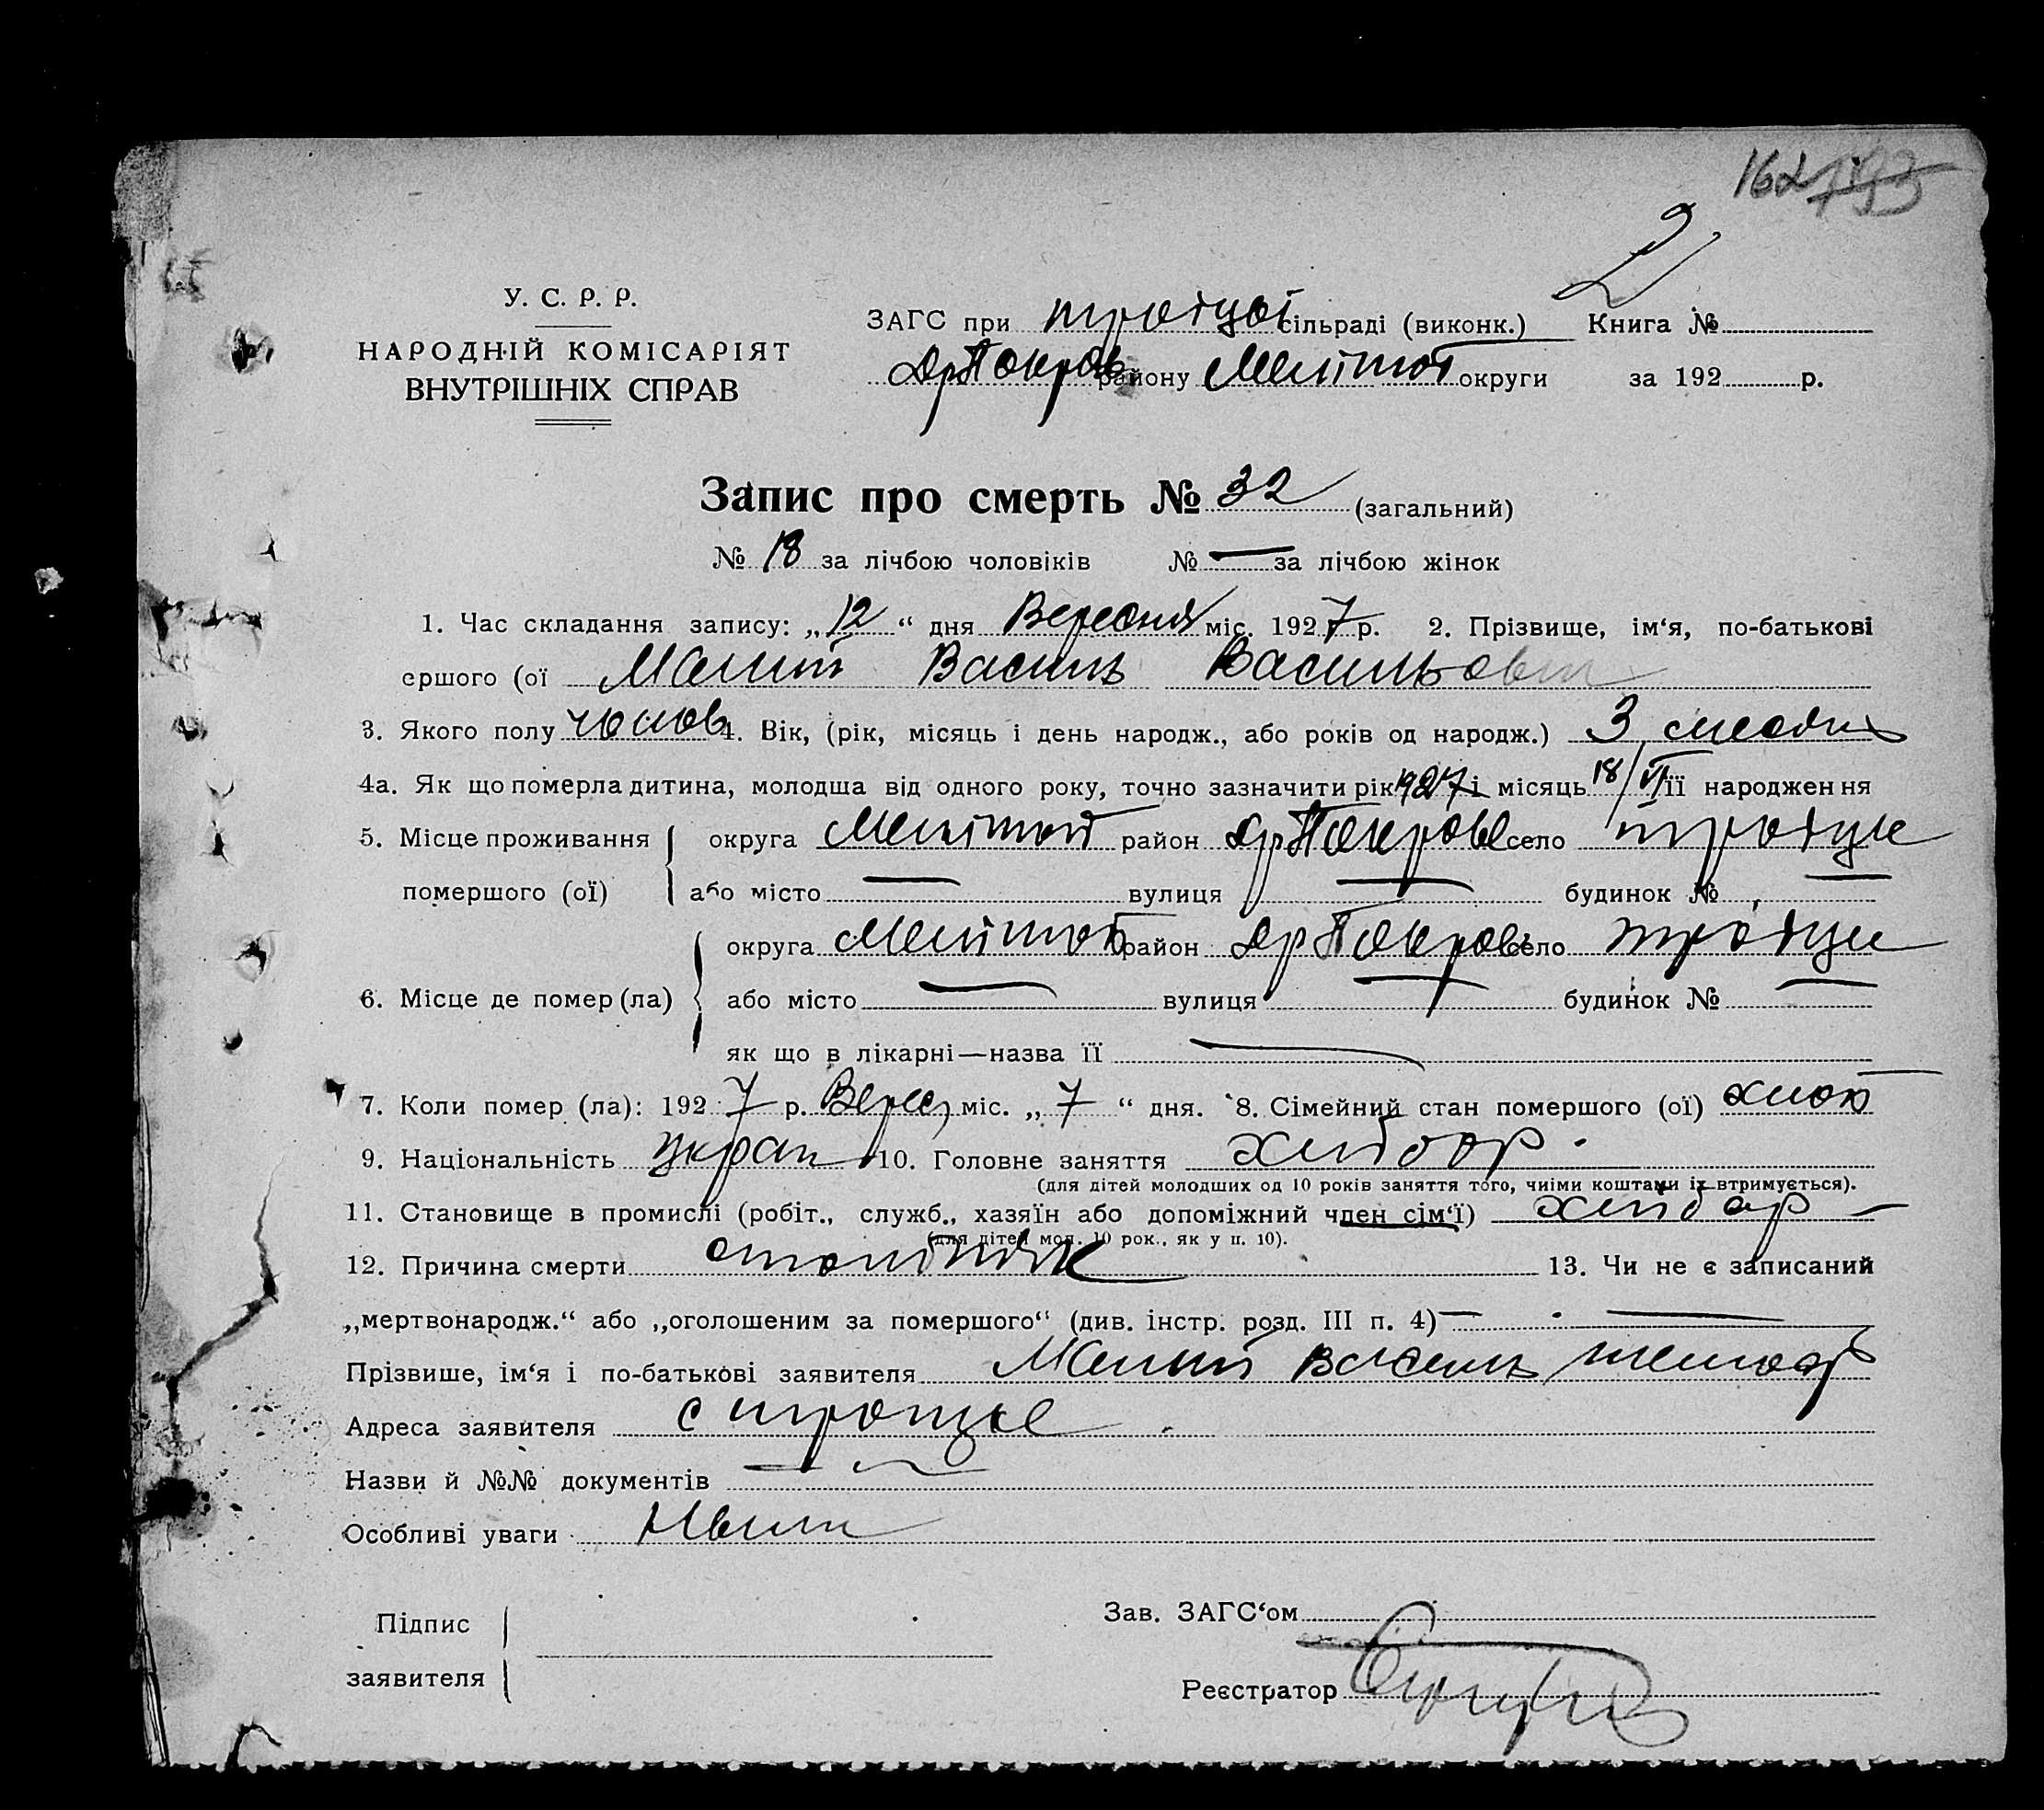 162 193
2
У. С. Р. Р.
НАРОДНІЙ КОМІСАРІЯТ
ВНУТРІШНІХ СПРАВ
ЗАГС при троїцкої сільраді (виконк.) Книга №
др Покров району Меліт округи за 192 р.
Запис про смерть № 32 (загальний)
№ 18 за лічбою чоловіків № — за лічбою жінок
1. Час складання запису: „12“ дня Вересня міс. 1927 р. 2. Прізвище, ім‘я, по-батькові
ершого (ої Малий Василь Васильович
3. Якого полу чолов 4. Вік, (рік, місяць і день народж., або років од народж.) 3
4а. Як що померла дитина, молодша від одного року, точно зазначити рік 1927 і місяць 18/VI її народження
5. Місце проживання округа Мелітоп район др Покров село троїцке
помершого (ої) або місто — вулиця — будинок № —
округа Мелітоп район др Покров село троїцке
6. Місце де помер (ла) або місто — вулиця — будинок № —
як що в лікарні—назва її —
7. Коли помер (ла): 1927 р. Верес, міс. „7“ дня. 8. Сімейний стан помершого (ої) хлоп
9. Національність украп 10. Головне заняття хлібор.
(для дітей молодших од 10 років заняття того, чиїми коштами їх втримується).
11. Становище в промислі (робіт., служб., хазяїн або допоміжний член сім‘ї) хлібор —
(для дітей мол. 10 рок., як у п. 10).
12. Причина смерти 13. Чи не є записаний
„мертвонародж.“ або „оголошеним за помершого“ (див. інстр. розд. III п. 4) — —
Прізвише, ім‘я і по-батькові заявителя Малий Василь
Адреса заявителя с троцке
Назви й №№ документів —
Особливі уваги
Підпис
заявителя
Зав. ЗАГС‘ом
Реєстратор